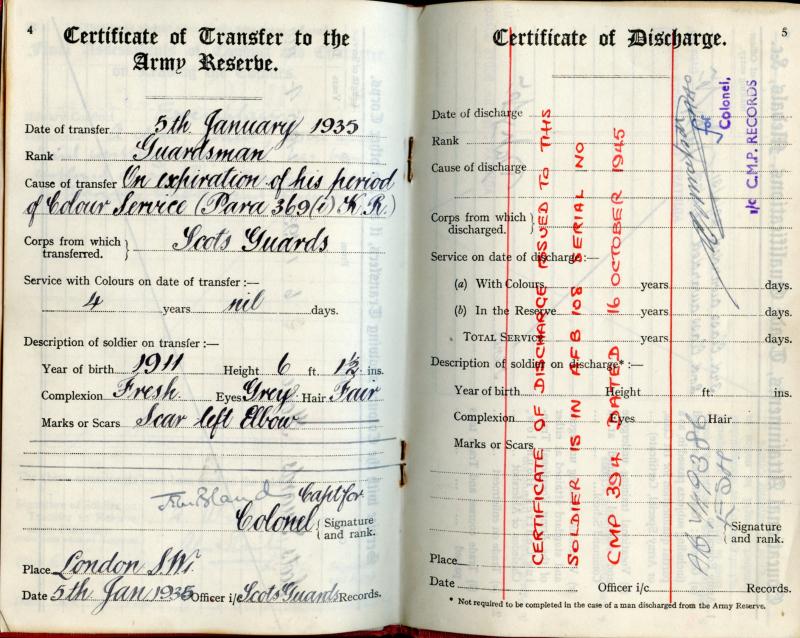 4
Certificate of Transfer to the
Army Reserve.
Date of transfer 5th January 1935
Rank Guardsman
Cause of transfer On expiration of his period
of Colour Service (Para 369(i) K.R.)
Corps from which
transferred. } Scots Guards
Service with Colours on date of transfer :—
4 years nil days.
Description of soldier on transfer :—
Year of birth 1911 Height 6 ft. 1½ ins.
Complexion Fresh Eyes Grey Hair Fair
Marks or Scars Scar left Elbow
Capt for
Colonel { Signature
and rank.
Place London S.W.
Date 5th Jan 1935 Officer i/c Scots Guards Records.
5
Certificate of Discharge.
Date of discharge
Rank
Cause of discharge
Corps from which
discharged. }
Service on date of discharge:—
(a) With Colours years days.
(b) In the Reserve years days.
TOTAL SERVICE years days.
Description of soldier on discharge* :—
Year of birth Height ft. ins.
Complexion Eyes Hair
Marks or Scars
{ Signature
and rank.
Place
Date Officer i/c Records.
* Not required to be completed in the case of a man discharged from the Army Reserve.
CERTIFICATE OF DISCHARGE ISSUED TO THIS
SOLDIER IS IN AFB 108 SERIAL NO
CMP 394 DATED 16 OCTOBER 1945
for
Colonel,
i/c C.M.P. RECORDS